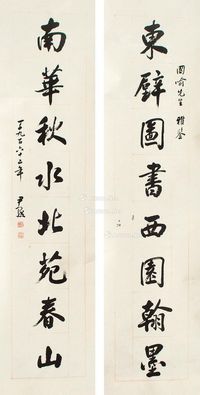 國喬先生 雅鑒
東壁圖書西園翰墨
南華秋水北苑春山
一千九百六十二年